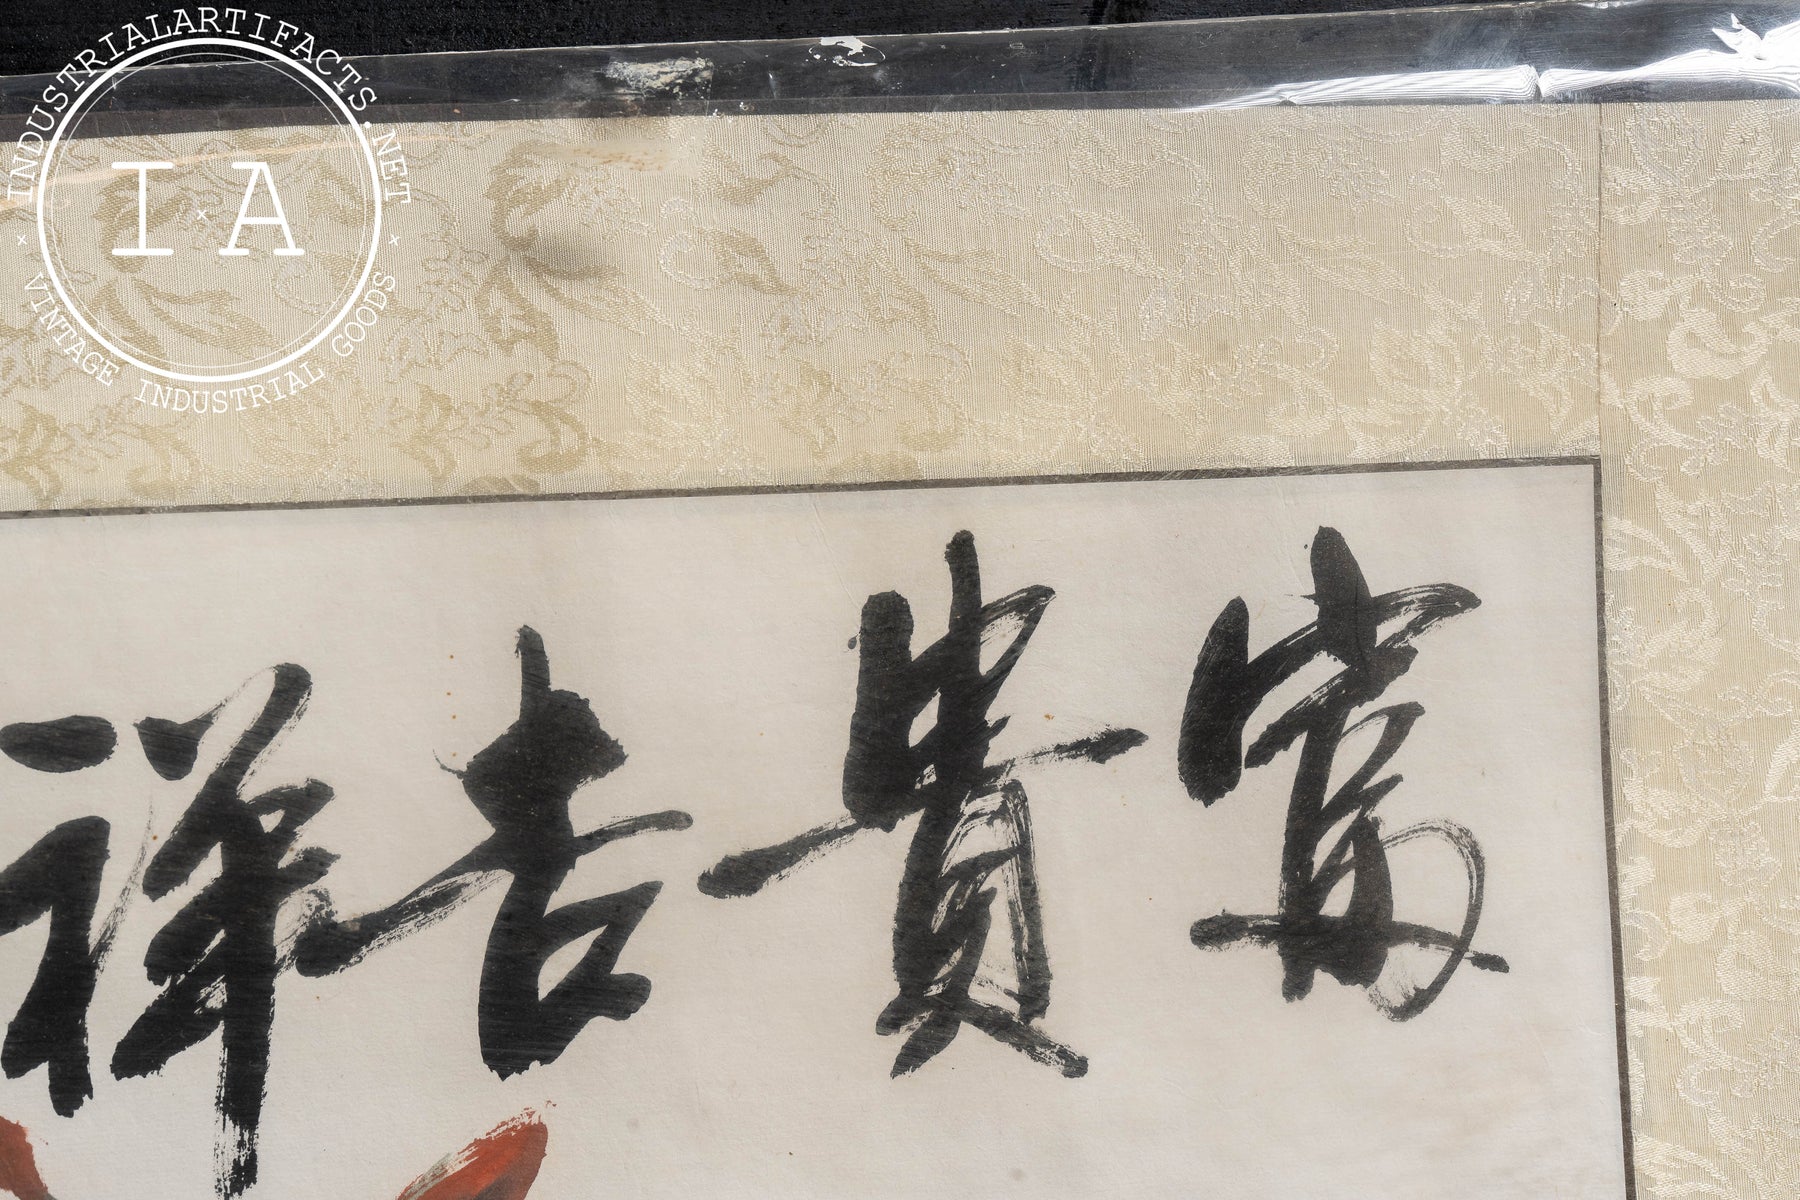 富貴吉祥
INDUSTRIALARTIFACTS.NET
I A
VINTAGE INDUSTRIAL GOODS